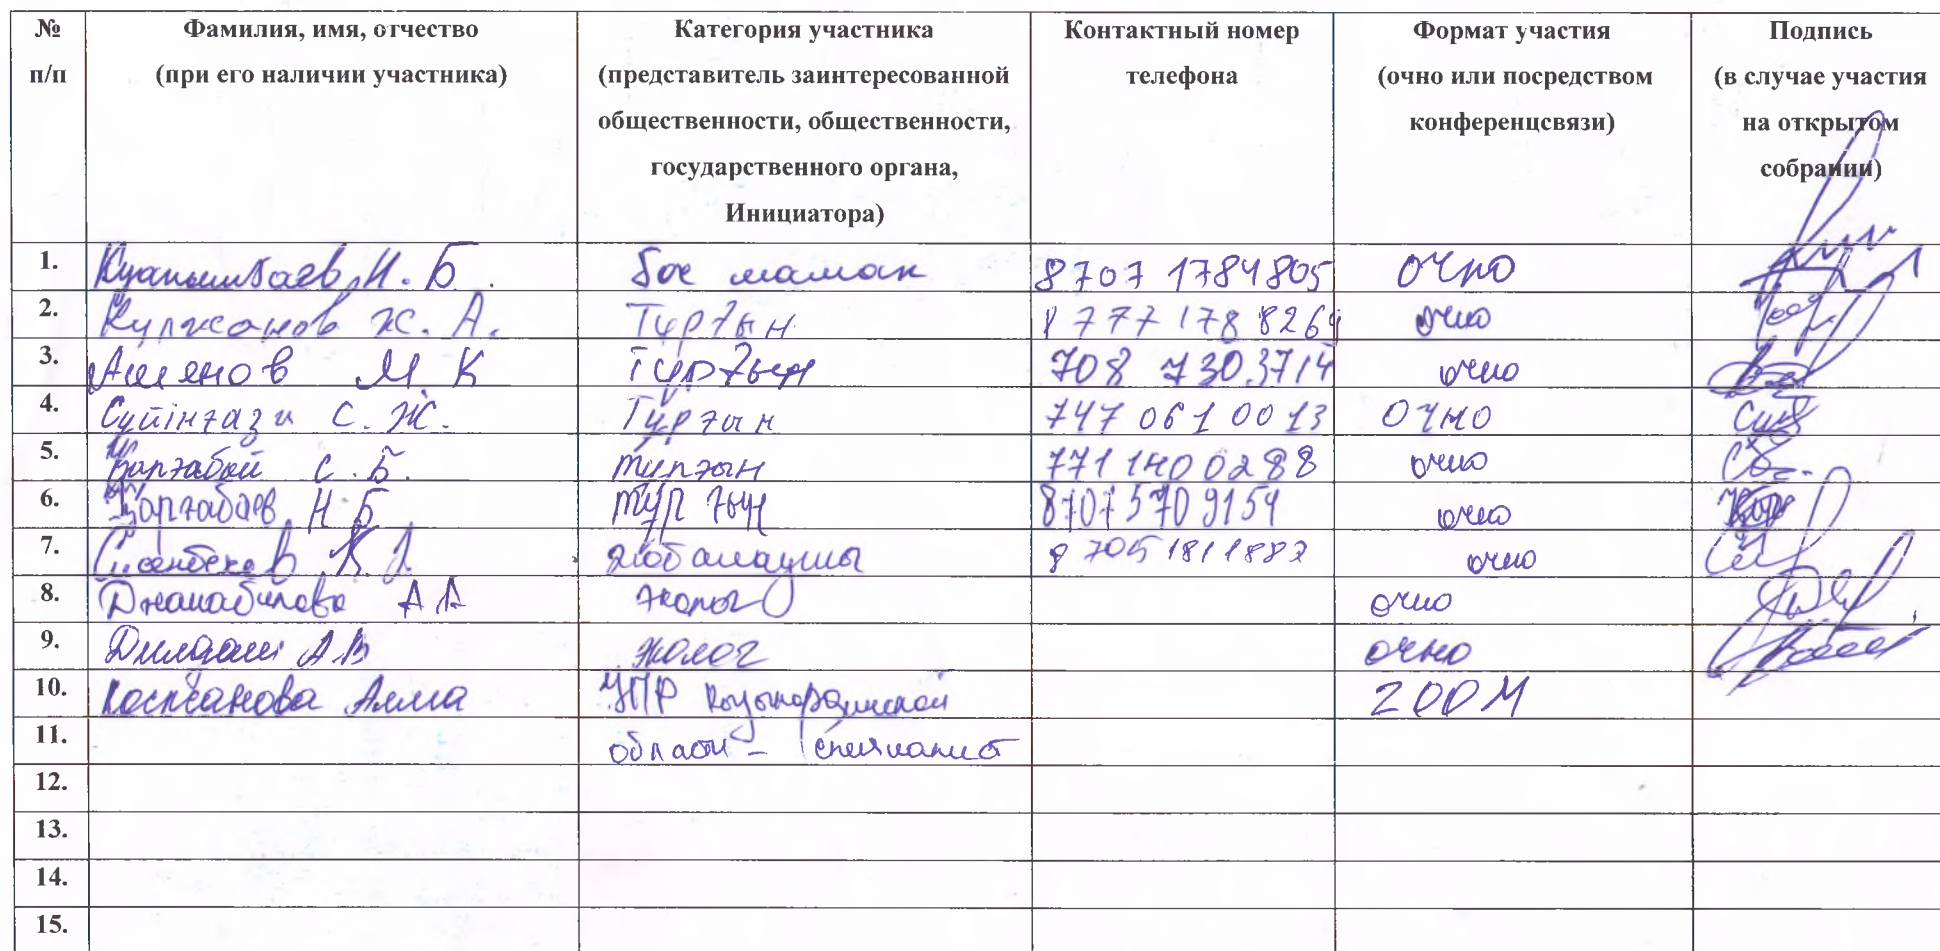 № п/п
Фамилия, имя, отчество
(при его наличии участника)
Категория участника
(представитель заинтересованной
общественности, общественности,
государственного органа,
Инициатора)
Контактный номер
телефона
Формат участия
(очно или посредством
конференцсвязи)
Подпись
(в случае участия
на открытом
собрании)
1. Куанышбаев Н. Б. бос маман 8707 1784805 очно
2. Купжанов Ж. А. Тұрғын 8 777 178 8269 очно
3. М. К Тұрғын 708 730.3714 очно
4. Сүйінғазы С. Ж. Тұрғын 747 061 00 13 очно
5. С. Б. тұрғын 771 140 02 88 очно
6. Қарғабаев Н Б тұрғын 8707 570 9154 очно
7. К жобалаушы 8 705 181 1882 очно
8. Джанабилова А А эколог очно
9. А.В эколог очно
10. Косжанова Алма УПР Кызылординской ZOOM
11. области – специалист
12.
13.
14.
15.